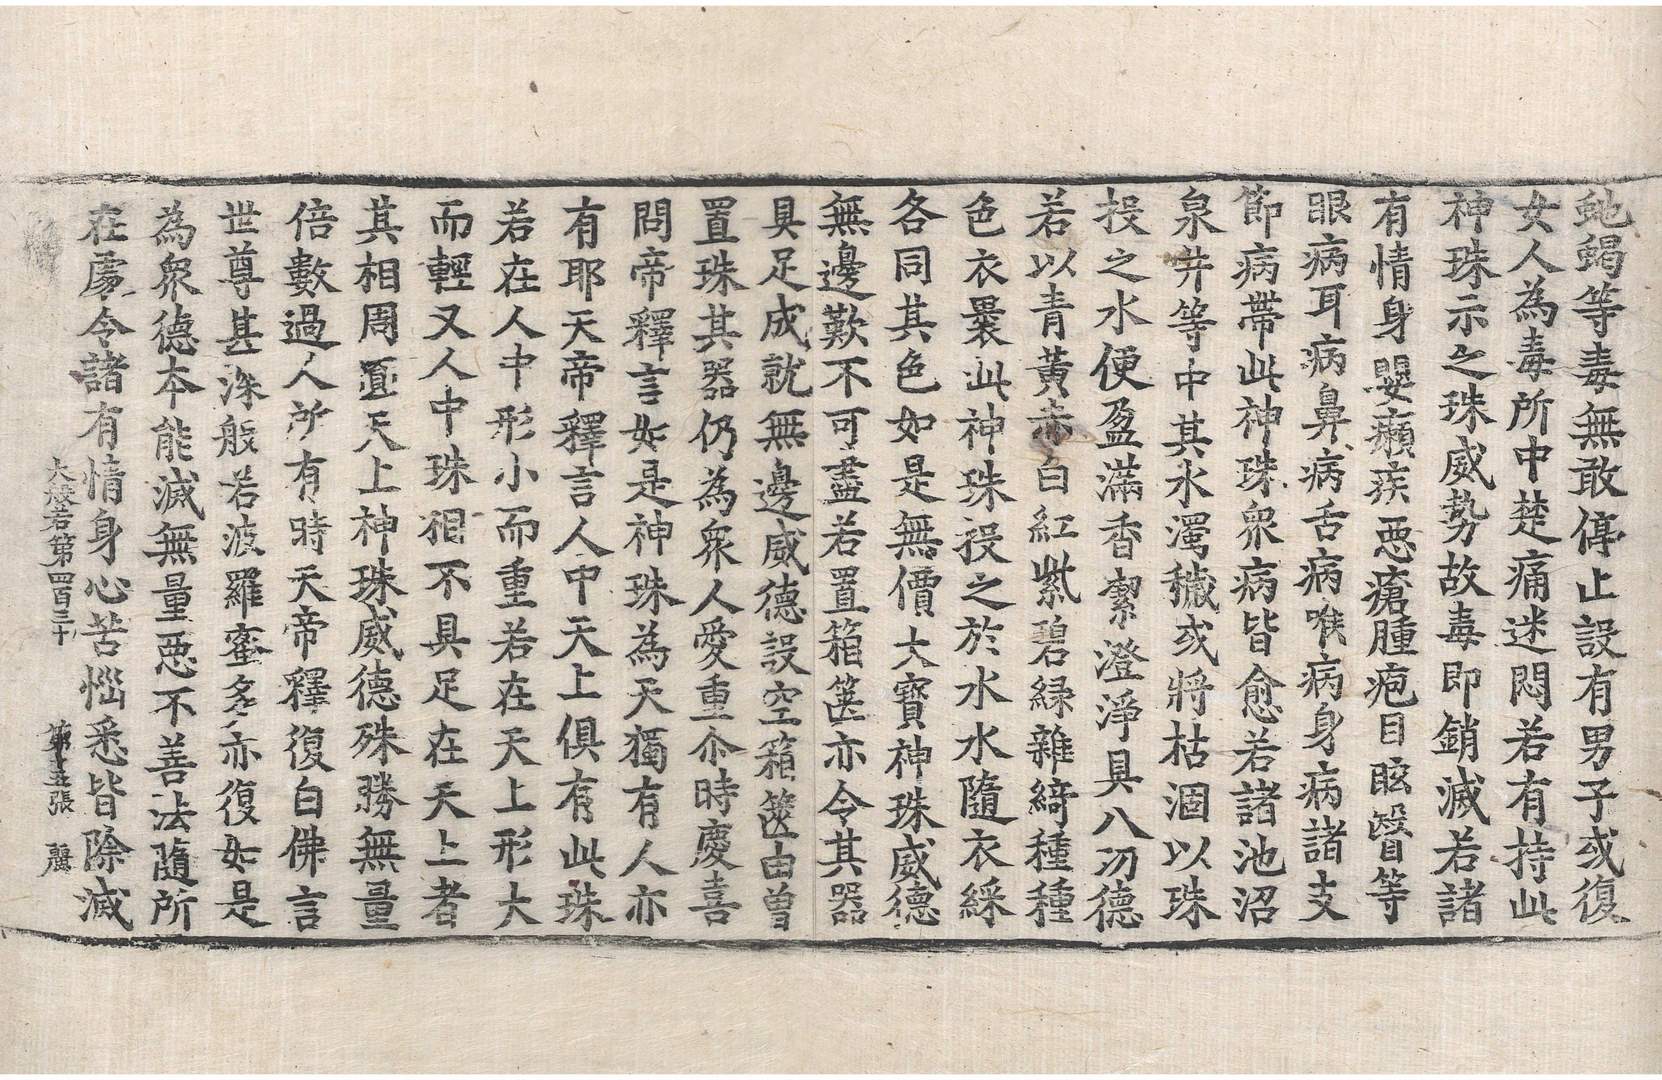 虵蝎等毒無敢停止設有男子或復
女人為毒所中楚痛迷悶若有持此
神珠示之珠威勢故毒即銷滅若諸
有情身嬰癩疾惡瘡腫疱目眩瞖等
眼病耳病鼻病舌病喉病身病諸支
節病帶此神珠衆病皆愈若諸池沼
泉井等中其水濁穢或將枯涸以珠
投之水便盈滿香潔澄淨具八功德
若以青黃赤白紅紫碧綠雜綺種種
色衣裹此神珠投之於水水隨衣綵
各同其色如是無價大寶神珠威德
無邊歎不可盡若置箱篋亦令其器
具足成就無邊威德設空箱篋由曾
置珠其器仍為衆人愛重尒時慶喜
問帝釋言如是神珠為天獨有人亦
有耶天帝釋言人中天上俱有此珠
若在人中形小而重若在天上形大
而輕又人中珠相不具足在天上者
其相周圓天上神珠威德殊勝無量
倍數過人所有時天帝釋復白佛言
世尊甚深般若波羅蜜多亦復如是
為衆德本能滅無量惡不善法隨所
在處令諸有情身心苦惱悉皆除滅
大般若第四百三十 第十五張 𪋯